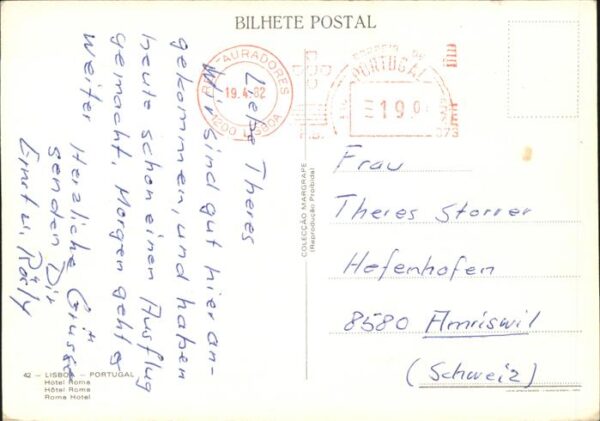 BILHETE POSTAL
Liebe Theres
Wir sind gut hier an-
gekommen, und haben
heute schon einen Ausflug
gemacht. Morgen geht es
weiter. Herzliche Grüsse
senden Dir
Ernst u. Röly
RESTAURADORES
19.4.82
1200 LISBOA
CORREIO DE
PORTUGAL
19.0
073
COLECÇÃO MARGRAPE
(Reprodução Proibida)
Frau
Theres Storrer
Hefenhofen
8580 Amriswil
(Schweiz)
42 — LISBOA — PORTUGAL
Hotel Roma
Hôtel Roma
Roma Hotel